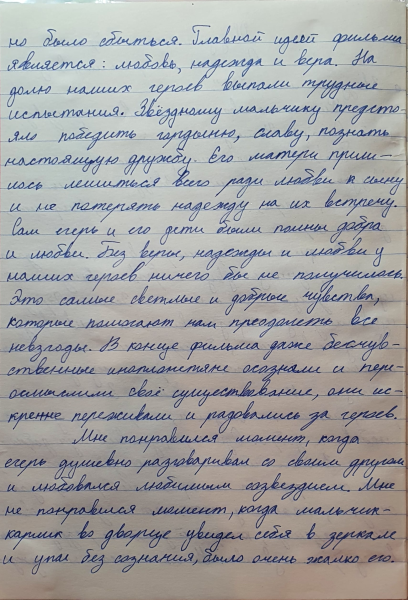 но было сбыться. Главной идеей фильма
является: любовь, надежда и вера. На
долю наших героев выпали трудные
испытания. Звёздному мальчику предсто-
яло победить гордыню, славу, познать
настоящую дружбу. Его матери приш-
лось лишиться всего ради любви к сыну
и не потерять надежду на их встречу.
Сам егерь и его дети были полны добра
и любви. Без веры, надежды и любви у
наших героев ничего бы не получилось.
Это самые светлые и добрые чувства,
которые помогают нам преодолеть все
невзгоды. В конце фильма даже бесчув-
ственные инопланетяне осознали и пере-
осмыслили своё существование, они ис-
кренне переживали и радовались за героев.
Мне понравился момент, когда
егерь душевно разговаривал со своим другом
и любовался любимым созвездием. Мне
не понравился момент, когда мальчик-
карлик во дворце увидел себя в зеркале
и упал без сознания, было очень жалко его.